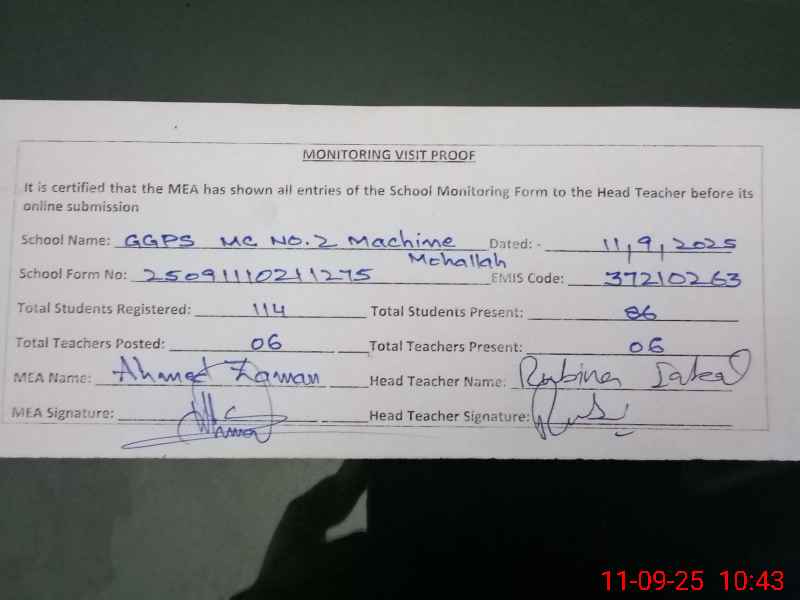 MONITORING VISIT PROOF
It is certified that the MEA has shown all entries of the School Monitoring Form to the Head Teacher before its
online submission
School Name: GGPS MC NO.2 Machine Mohallah Dated: - 11,9,2025
School Form No: 25091110211275 EMIS Code: 37210263
Total Students Registered: 114 Total Students Present: 86
Total Teachers Posted: 06 Total Teachers Present: 06
MEA Name: Ahmed Zaman Head Teacher Name: Rubina
MEA Signature: Head Teacher Signature:
11-09-25 10:43